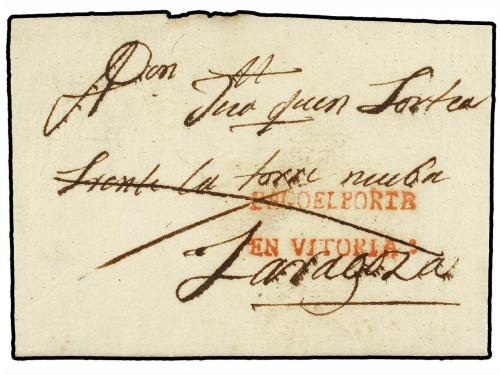 Don
Juaquin Sortea
frente la torre nueba
PAGO EL PORTE
EN VITORIA :
Zaragoza